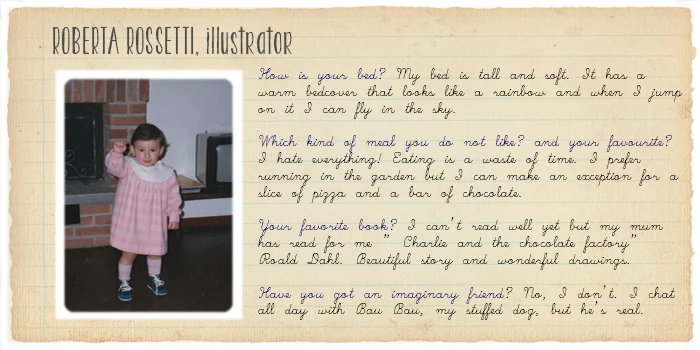 ROBERTA ROSSETTI, illustrator
How is your bed? My bed is tall and soft. It has a
warm bedcover that looks like a rainbow and when I jump
on it I can fly in the sky.
Which kind of meal you do not like? and your favourite?
I hate everything! Eating is a waste of time. I prefer
running in the garden but I can make an exception for a
slice of pizza and a bar of chocolate.
Your favorite book? I can't read well yet but my mum
has read for me " Charlie and the chocolate factory"
Roald Dahl. Beautiful story and wonderful drawings.
Have you got an imaginary friend? No, I don't. I chat
all day with Bau Bau, my stuffed dog, but he's real.